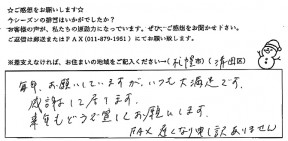 ☆ご感想をお願いします☆
今シーズンの感想はいかがでしたか？
お客様の声が、私たちの原動力になっています。ぜひ、ご感想をお聞かせ下さい。
ご返信は郵送またはFAX(011-879-1951)にてお願い致します。
※差支えなければ、お住まいの地域をご記入ください→(札幌市)(清田区)
毎年、お願いしていますが、いつも大満足です。
感謝して居ります。
来年もどうぞ宜しくお願いします。
FAX 遅くなり申し訳ありません